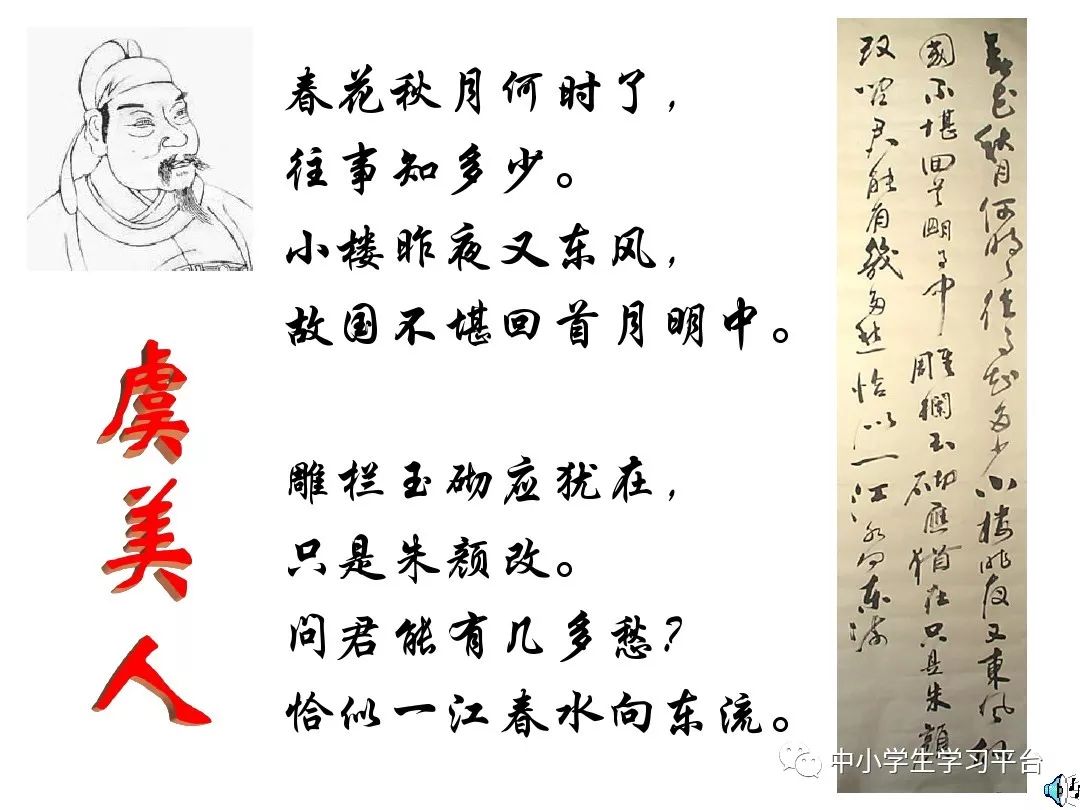 虞美人
春花秋月何时了，
往事知多少。
小楼昨夜又东风，
故国不堪回首月明中。
雕栏玉砌应犹在，
只是朱颜改。
问君能有几多愁？
恰似一江春水向东流。
春花秋月何時了往事知多少小樓昨夜又東風故
國不堪回首明月中雕欄玉砌應猶在只是朱顏
改問君能有幾多愁恰似一江水向東流
中小学生学习平台